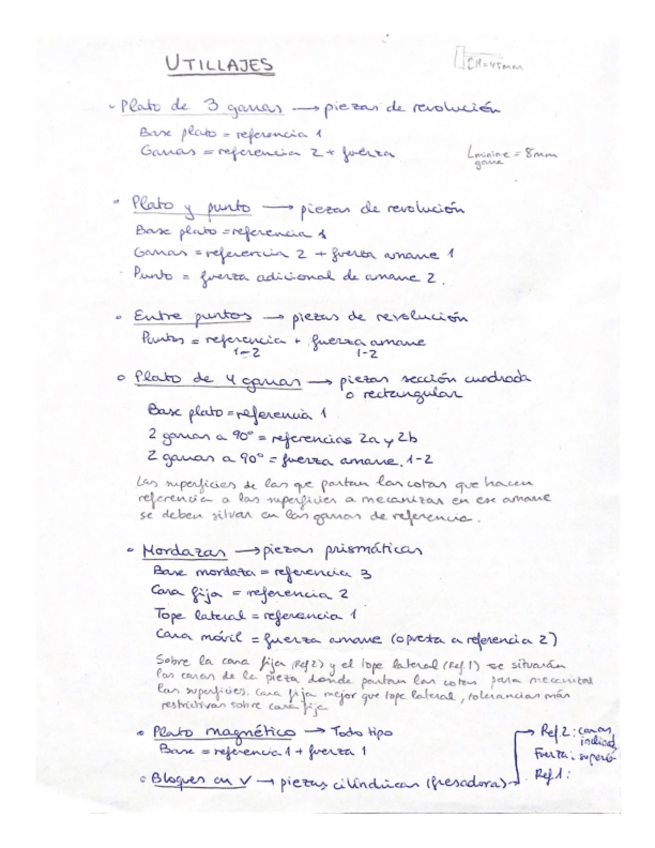 UTILLAJES
=45mm
- Plato de 3 garras → piezas de revolución
Base plato = referencia 1
Garras = referencia 2 + fuerza
Lmínima = 8mm
garra
• Plato y punto → piezas de revolución
Base plato = referencia 1
Garras = referencia 2 + fuerza amarre 1
Punto = fuerza adicional de amarre 2.
• Entre puntos → piezas de revolución
Puntos = referencia + fuerza amarre
1-2 1-2
• Plato de 4 garras → piezas sección cuadrada
o rectangular
Base plato = referencia 1
2 garras a 90° = referencias 2a y 2b
2 garras a 90° = fuerza amarre 1-2
Las superficies de las que partan las cotas que hacen
referencia a las superficies a mecanizar en ese amarre
se deben situar en las garras de referencia.
• Mordazas → piezas prismáticas
Base mordaza = referencia 3
Cara fija = referencia 2
Tope lateral = referencia 1
Cara móvil = fuerza amarre (aprieta a referencia 2)
Sobre la cara fija (Ref 2) y el tope lateral (Ref 1) se situarán
las caras de la pieza donde partan las cotas para mecanizar
las superficies. Cara fija mejor que tope lateral, tolerancias más
restrictivas sobre cara fija
• Plato magnético → Todo tipo
Base = referencia 1 + fuerza 1
• Bloques en V → piezas cilíndricas (fresadora) →
Ref 2: caras
Fuerza: 
Ref 1: